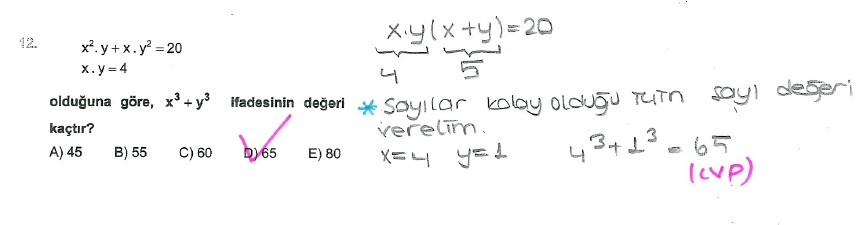 12.
x². y + x . y² = 20
x . y = 4
olduğuna göre, x³ + y³ ifadesinin değeri
kaçtır?
A) 45 B) 55 C) 60 D) 65 E) 80
x.y(x+y)=20
4 5
* Sayılar kolay olduğu için sayı değeri
verelim.
x=4 y=1 4³+1³ = 65
(cvp)